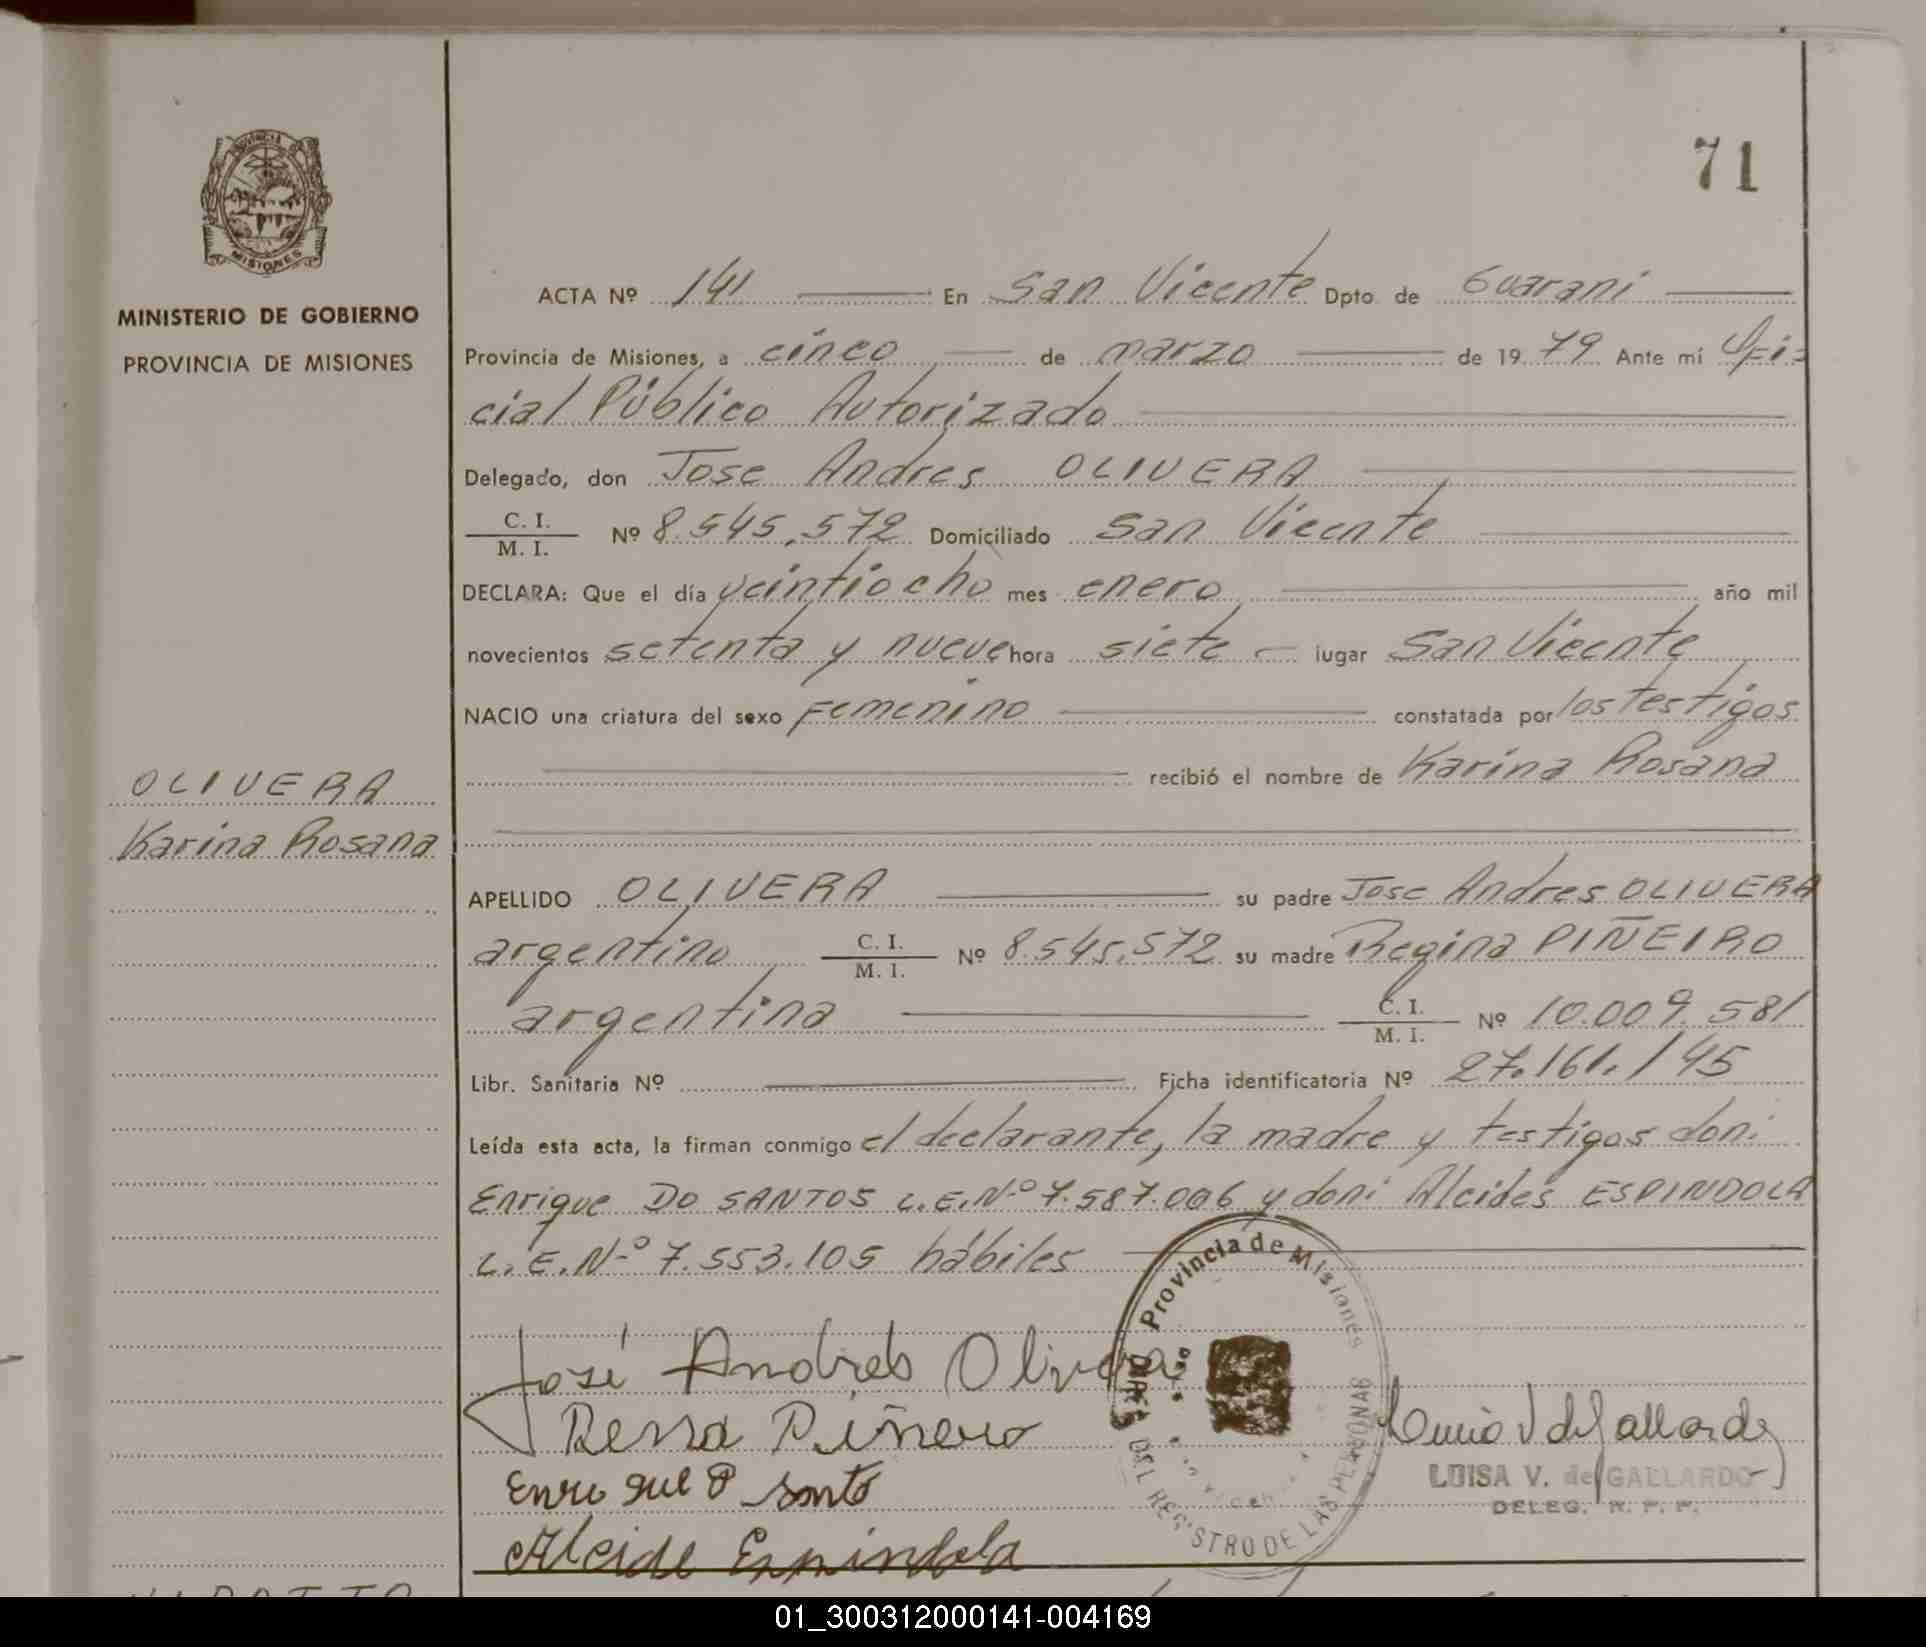 71
MISIONES
MINISTERIO DE GOBIERNO
PROVINCIA DE MISIONES
OLIVERA
Karina Rosana
ACTA Nº 141 En San Vicente Dpto. de Guarani
Provincia de Misiones, a cinco de marzo de 1979 Ante mí Ofi=
cial Público Autorizado
Delegado, don Jose Andres OLIVERA
C. I.
M. I. Nº 8.545.572 Domiciliado San Vicente
DECLARA: Que el día veintiocho mes enero año mil
novecientos setenta y nueve hora siete lugar San Vicente
NACIO una criatura del sexo Femenino constatada por los testigos
recibió el nombre de Karina Rosana
APELLIDO OLIVERA su padre Jose Andres OLIVERA
argentino C. I.
M. I. Nº 8.545.572 su madre Regina PIÑEIRO
argentina C. I.
M. I. Nº 10.009.581
Libr. Sanitaria Nº Ficha identificatoria Nº 27.161.145
Leída esta acta, la firman conmigo el declarante, la madre y testigos don:
Enrique DO SANTOS L.E.Nº 7.587.006 y don: Alcides ESPINDOLA
L.E.Nº 7.553.105 hábiles
José Andrés Olivera
Piñero
Enrique D Santo
Alcide Espindola
Provincia de Misiones
DEL REGISTRO DE LAS PERSONAS
LUISA V. de GALLARDO
DELEG. R. P. P.
01_300312000141-004169